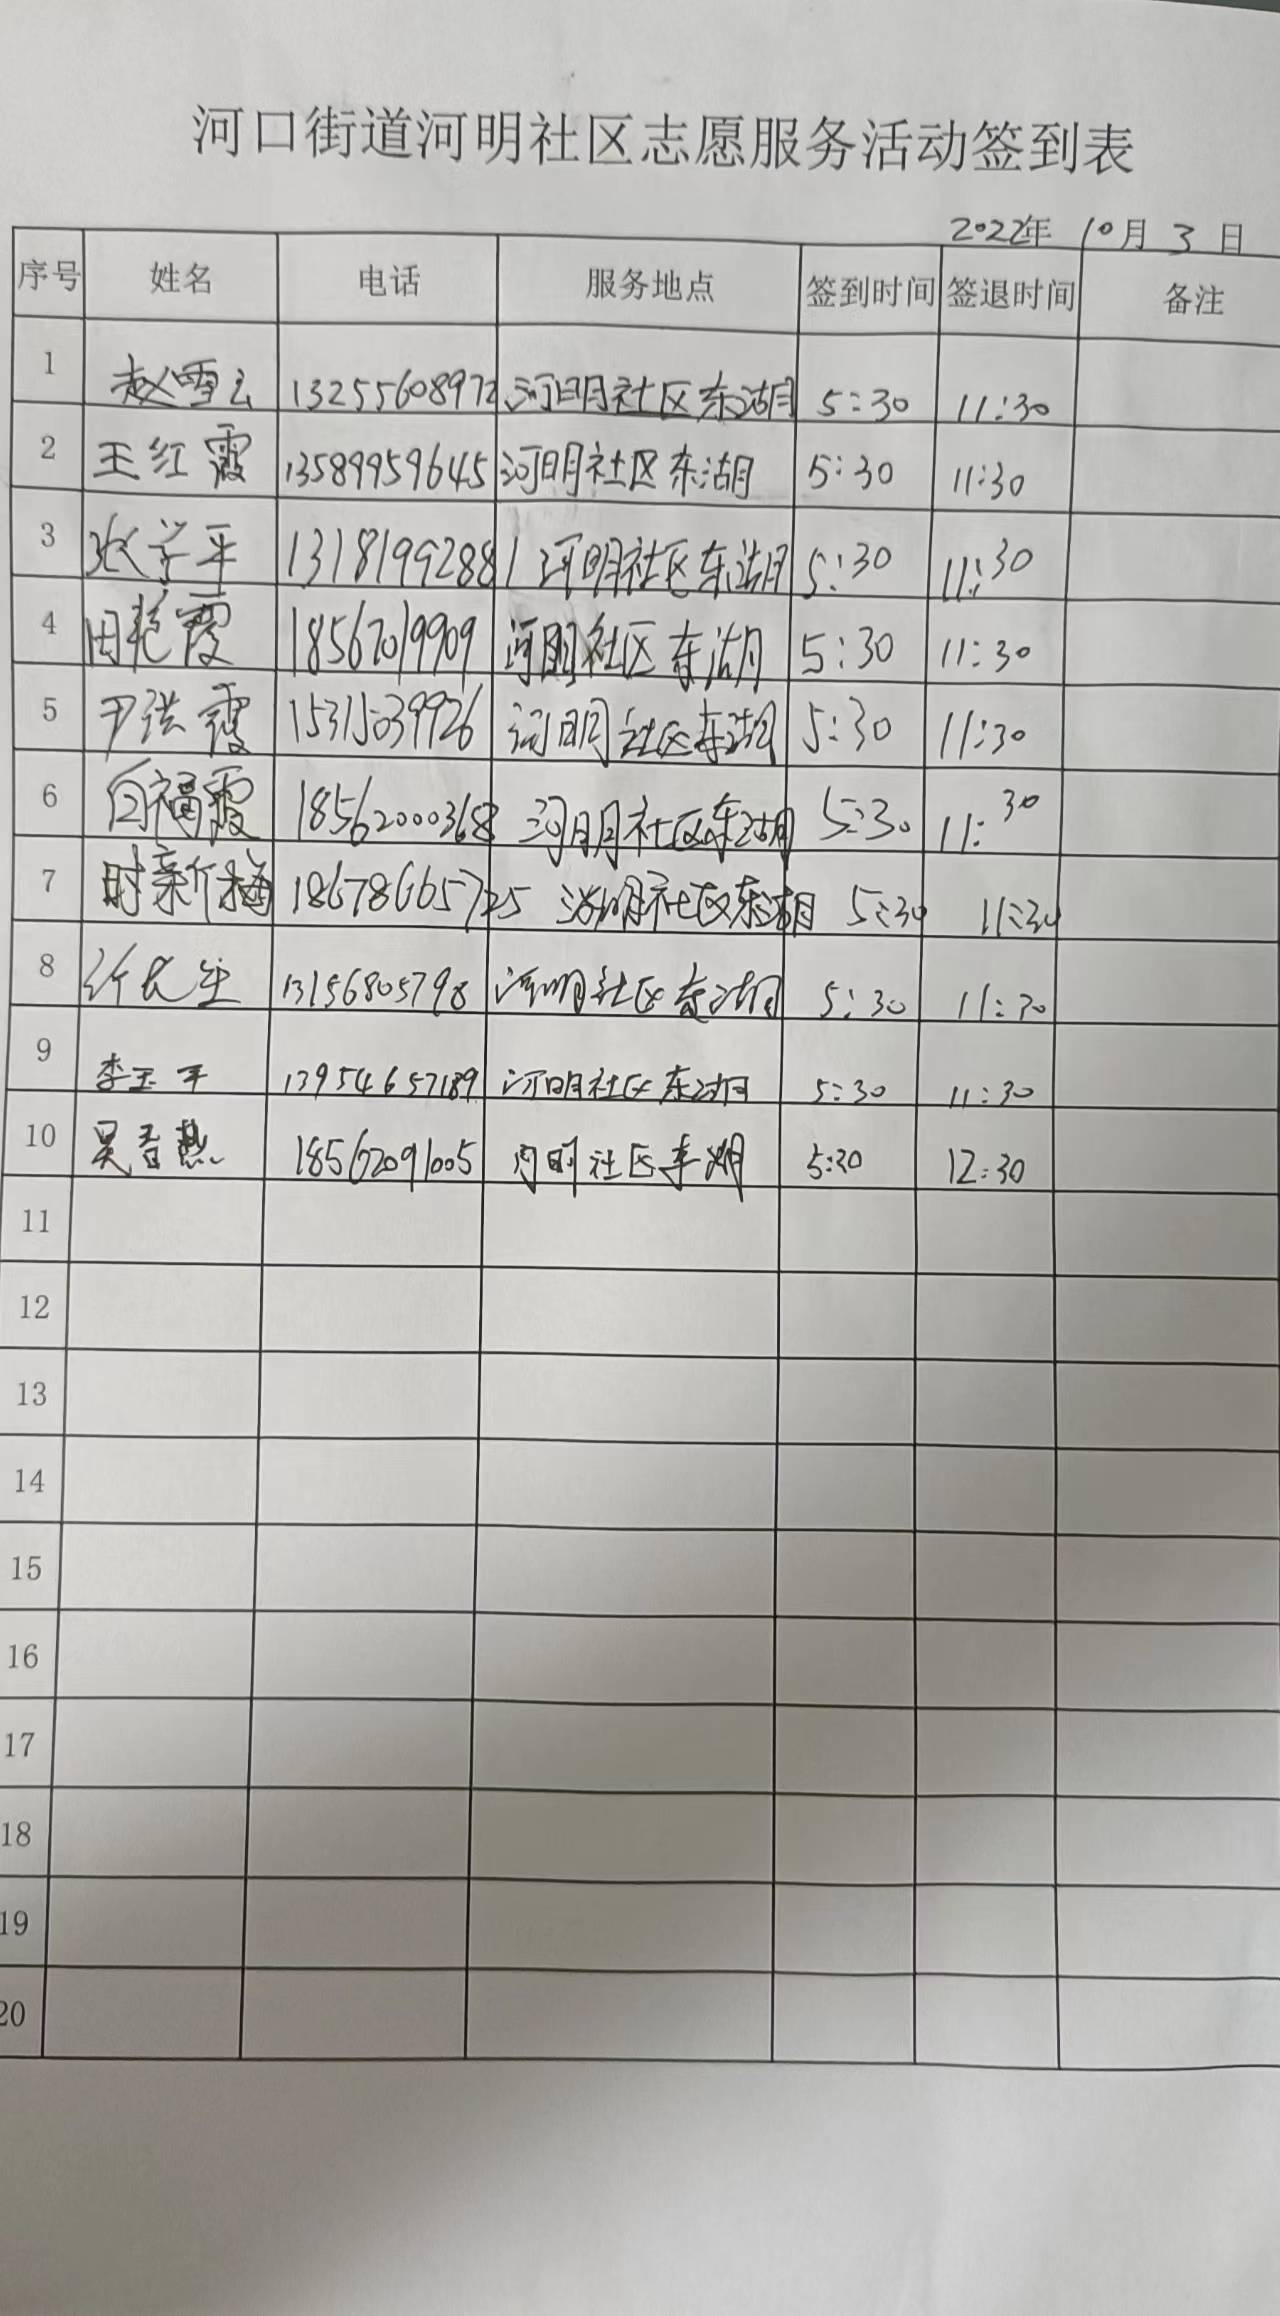 河口街道河明社区志愿服务活动签到表
2022年 10月 3 日
序号 姓名 电话 服务地点 签到时间 签退时间 备注
1 赵雪云 13255608972 河明社区东湖 5:30 11:30
2 王红霞 13589959645 河明社区东湖 5:30 11:30
3 张学平 13181992881 河明社区东湖 5:30 11:30
4 田艳霞 18562019909 河明社区东湖 5:30 11:30
5 尹洪霞 15315039926 河明社区东湖 5:30 11:30
6 白福霞 18562000368 河明社区东湖 5:30 11:30
7 时新梅 18678665725 河明社区东湖 5:30 11:30
8 13156805798 河明社区东湖 5:30 11:30
9 李玉平 13954657189 河明社区东湖 5:30 11:30
10 吴春燕 18562091005 河明社区东湖 5:30 12:30
11
12
13
14
15
16
17
18
19
20